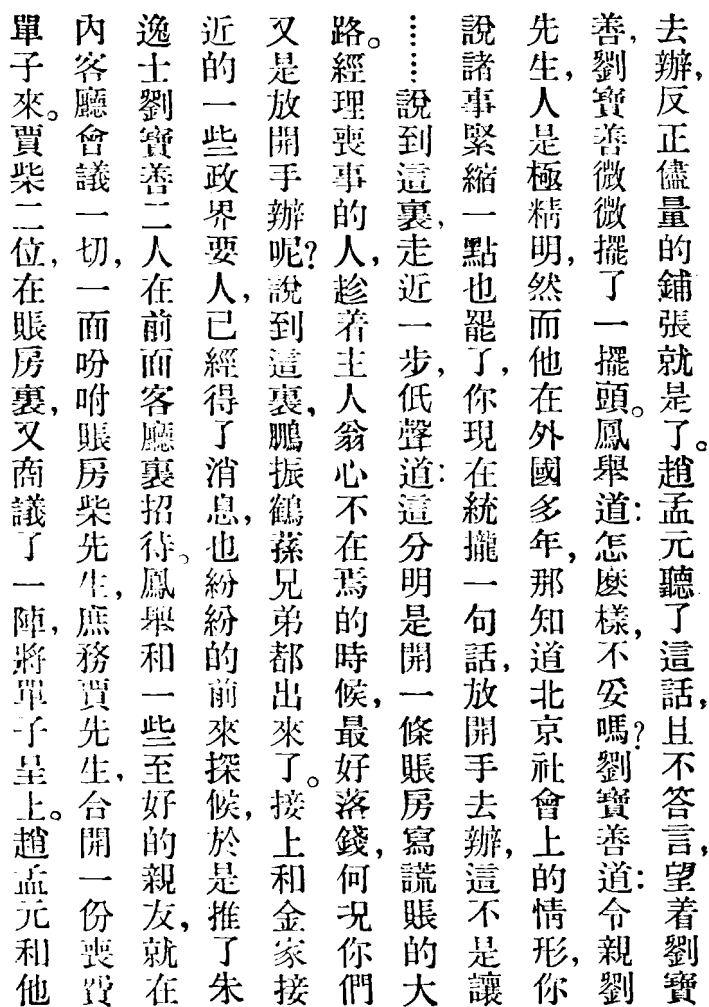 去辦，反正儘量的鋪張就是了。趙孟元聽了這話，且不答言，望着劉寶
善，劉寶善微微擺了一擺頭。鳳舉道：怎麽樣，不妥嗎？劉寶善道：令親劉
先生，人是極精明，然而他在外國多年，那知道北京社會上的情形，你
說諸事緊縮一點也罷了，你現在統攏一句話，放開手去辦，這不是讓
……說到這裏，走近一步，低聲道：這分明是開一條賬房寫謊賬的大
路。經理喪事的人，趁着主人翁心不在焉的時候，最好落錢，何况你們
又是放開手辦呢？說到這裏，鵬振鶴蓀兄弟都出來了。接上和金家接
近的一些政界要人，已經得了消息，也紛紛的前來探候，於是推了朱
逸士劉寶善二人在前面客廳裏招待。鳳舉和一些至好的親友，就在
內客廳會議一切，一面吩咐賬房柴先生，庶務賈先生，合開一份喪費
單子來。賈柴二位，在賬房裏，又商議了一陣，將單子呈上。趙孟元和他